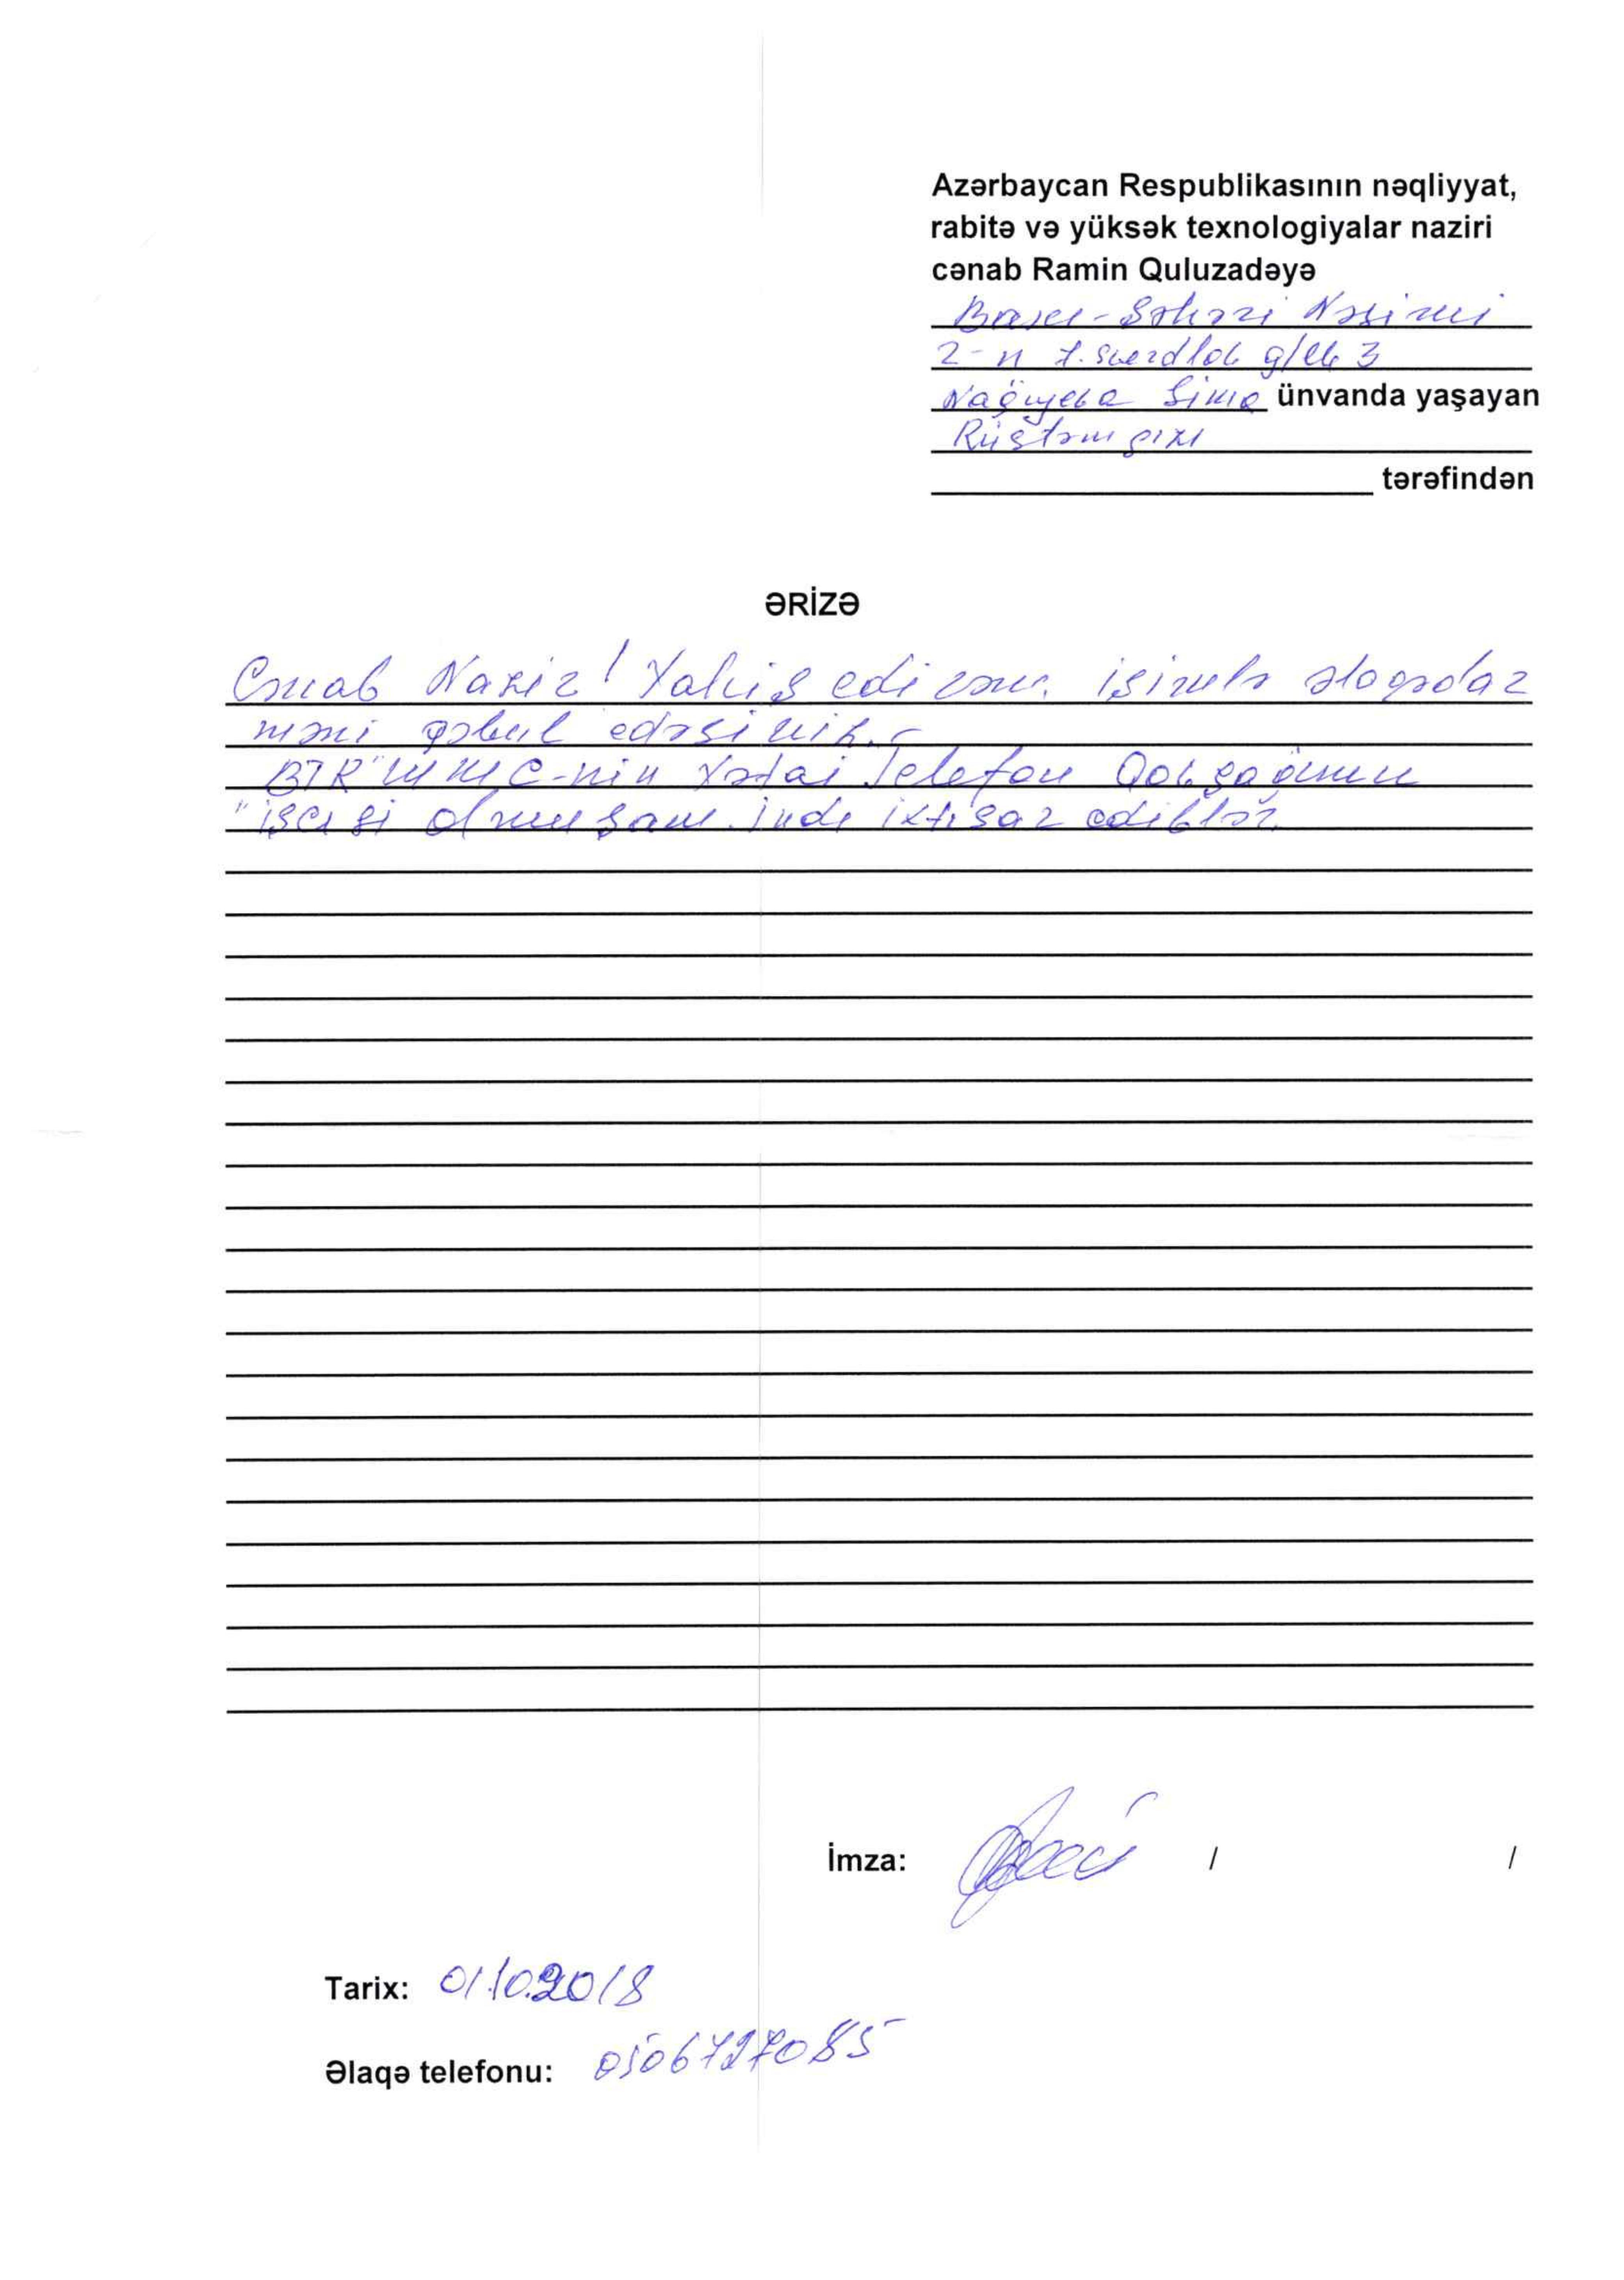 Azərbaycan Respublikasının nəqliyyat,
rabitə və yüksək texnologiyalar naziri
cənab Ramin Quluzadəyə
Bakı-Şəhəri Nəsimi
2-n
Nağıyeva Sima ünvanda yaşayan
Rüstəm qızı
tərəfindən
ƏRİZƏ
Cənab Nazir! Xahiş edirəm işimlə əlaqədar
məni qəbul edəsiniz.
BTR" MMC-nin Xətai Telefon Qovşağının
işçisi olmuşam. İndi ixtisar ediblər.
İmza: / /
Tarix: 01.10.2018
Əlaqə telefonu: